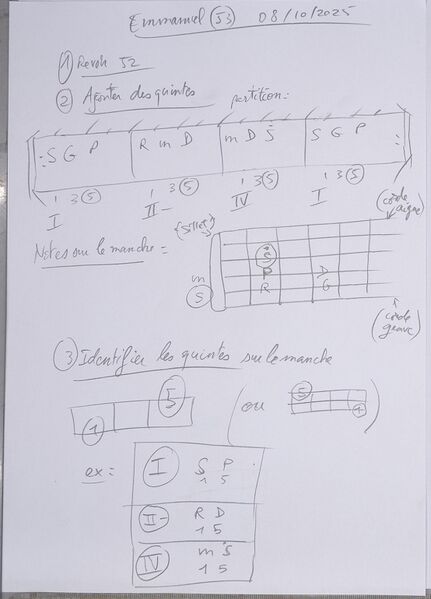 Emmanuel (53) 08/10/2025
① Revoir 52
② Ajouter des quintes partition:
: S G P | R m D | m D Ṡ | S G P :
1 3 ⑤ 1 3 ⑤ 1 3 ⑤ 1 3 ⑤
I II- IV I
(corde aigue)
(Sillet)
Notes sur le manche =
Ṡ
m P D
S R G
(corde grave)
③ Identifier les quintes sur le manche
① 5 (ou ⑤ ①)
ex = I S P
1 5
II- R D
1 5
IV m Ṡ
1 5